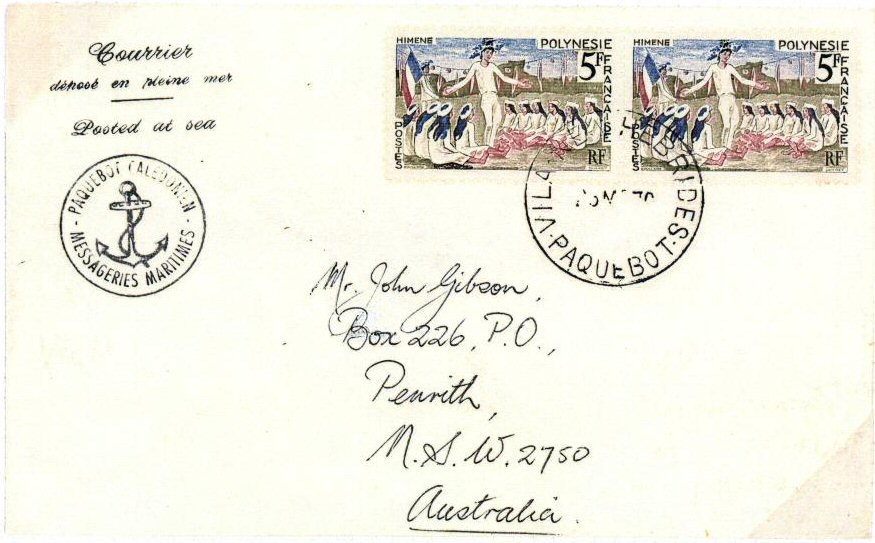 Courrier
déposé en pleine mer
Posted at sea
PAQUEBOT CALEDONIEN
- MESSAGERIES MARITIMES -
HIMENE
POLYNESIE
FRANÇAISE
5F
POSTES
RF
HIMENE
POLYNESIE
FRANÇAISE
5F
POSTES
RF
VILA HEBRIDES
·PAQUEBOT·
Mr. John Gibson,
Box 226, P.O.,
Penrith,
N.S.W. 2750
Australia.